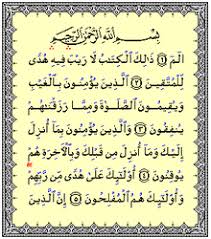 بِسْمِ اللَّهِ الرَّحْمَٰنِ الرَّحِيمِ
الم ﴿١﴾ ذَٰلِكَ الْكِتَابُ لَا رَيْبَ فِيهِ هُدًى
لِلْمُتَّقِينَ ﴿٢﴾ الَّذِينَ يُؤْمِنُونَ بِالْغَيْبِ
وَيُقِيمُونَ الصَّلَوٰةَ وَمِمَّا رَزَقْنَاهُمْ
يُنفِقُونَ ﴿٣﴾ وَالَّذِينَ يُؤْمِنُونَ بِمَا أُنزِلَ
إِلَيْكَ وَمَا أُنزِلَ مِن قَبْلِكَ وَبِالْآخِرَةِ هُمْ
يُوقِنُونَ ﴿٤﴾ أُولَٰئِكَ عَلَىٰ هُدًى مِّن رَّبِّهِمْ
وَأُولَٰئِكَ هُمُ الْمُفْلِحُونَ ﴿٥﴾ إِنَّ الَّذِينَ